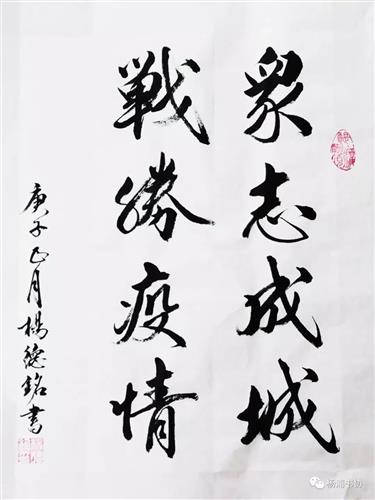 眾志成城
戰勝疫情
庚子正月楊德銘書
杨浦书协